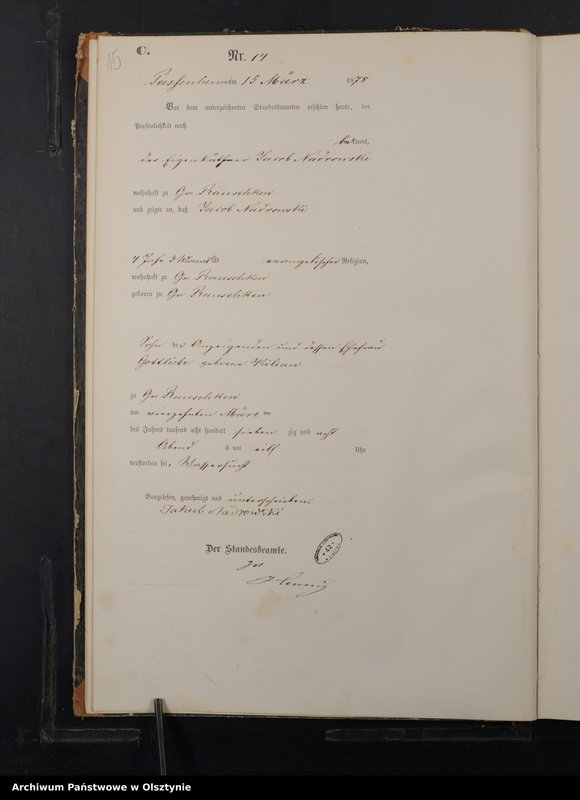 15
C.
Nr. 14
Passenheim am 15 März 1878
Vor dem unterzeichneten Standesbeamten erschien heute, der
Persönlichkeit nach
bekannt,
der Eigenkäthner Jacob Nadrowski
wohnhaft zu Gr. Rauschken
und zeigte an, daß Jacob Nadrowski
4 Jahr 3 Monat alt evangelischer Religion,
wohnhaft zu Gr. Rauschken
geboren zu Gr. Rauschken
Sohn des Anzeigenden und dessen Ehefrau
Gottliebe geborne Kilian
zu Gr. Rauschken
am vierzehnten März
des Jahres tausend acht hundert siebenzig und acht
Abend s um eilf Uhr
verstorben sei. Wassersucht
Vorgelesen, genehmigt und unterschrieben.
Jakub Nadrowski
Der Standesbeamte.
Archiwum Państwowe w Olsztynie